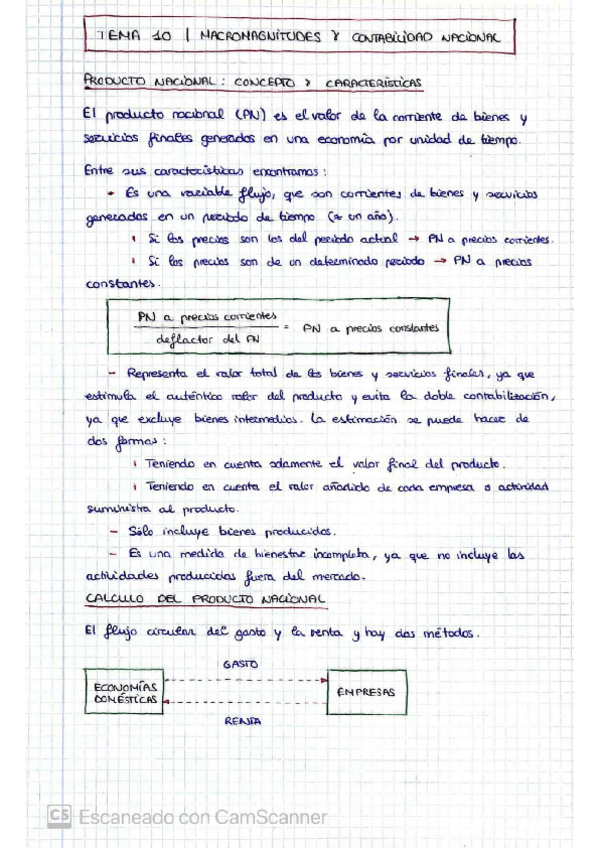 TEMA 10 | MACROMAGNITUDES Y CONTABILIDAD NACIONAL
PRODUCTO NACIONAL: CONCEPTO Y CARACTERÍSTICAS
El producto nacional (PN) es el valor de la corriente de bienes y
servicios finales generados en una economía por unidad de tiempo.
Entre sus características encontramos:
- Es una variable flujo, que son corrientes de bienes y servicios
generados en un periodo de tiempo (≈ un año).
Si los precios son los del periodo actual → PN a precios corrientes.
Si los precios son de un determinado periodo → PN a precios
constantes.
PN a precios corrientes
deflactor del PN
= PN a precios constantes
- Representa el valor total de los bienes y servicios finales, ya que
estimula el auténtico valor del producto y evita la doble contabilización,
ya que excluye bienes intermedios. La estimación se puede hacer de
dos formas:
Teniendo en cuenta solamente el valor final del producto.
Teniendo en cuenta el valor añadido de cada empresa o actividad
suministra al producto.
- Sólo incluye bienes producidos.
- Es una medida de bienestar incompleta, ya que no incluye las
actividades producidas fuera del mercado.
CALCULO DEL PRODUCTO NACIONAL
El flujo circular del gasto y la renta y hay dos métodos.
GASTO
ECONOMÍAS
DOMÉSTICAS
EMPRESAS
RENTA
CS Escaneado con CamScanner